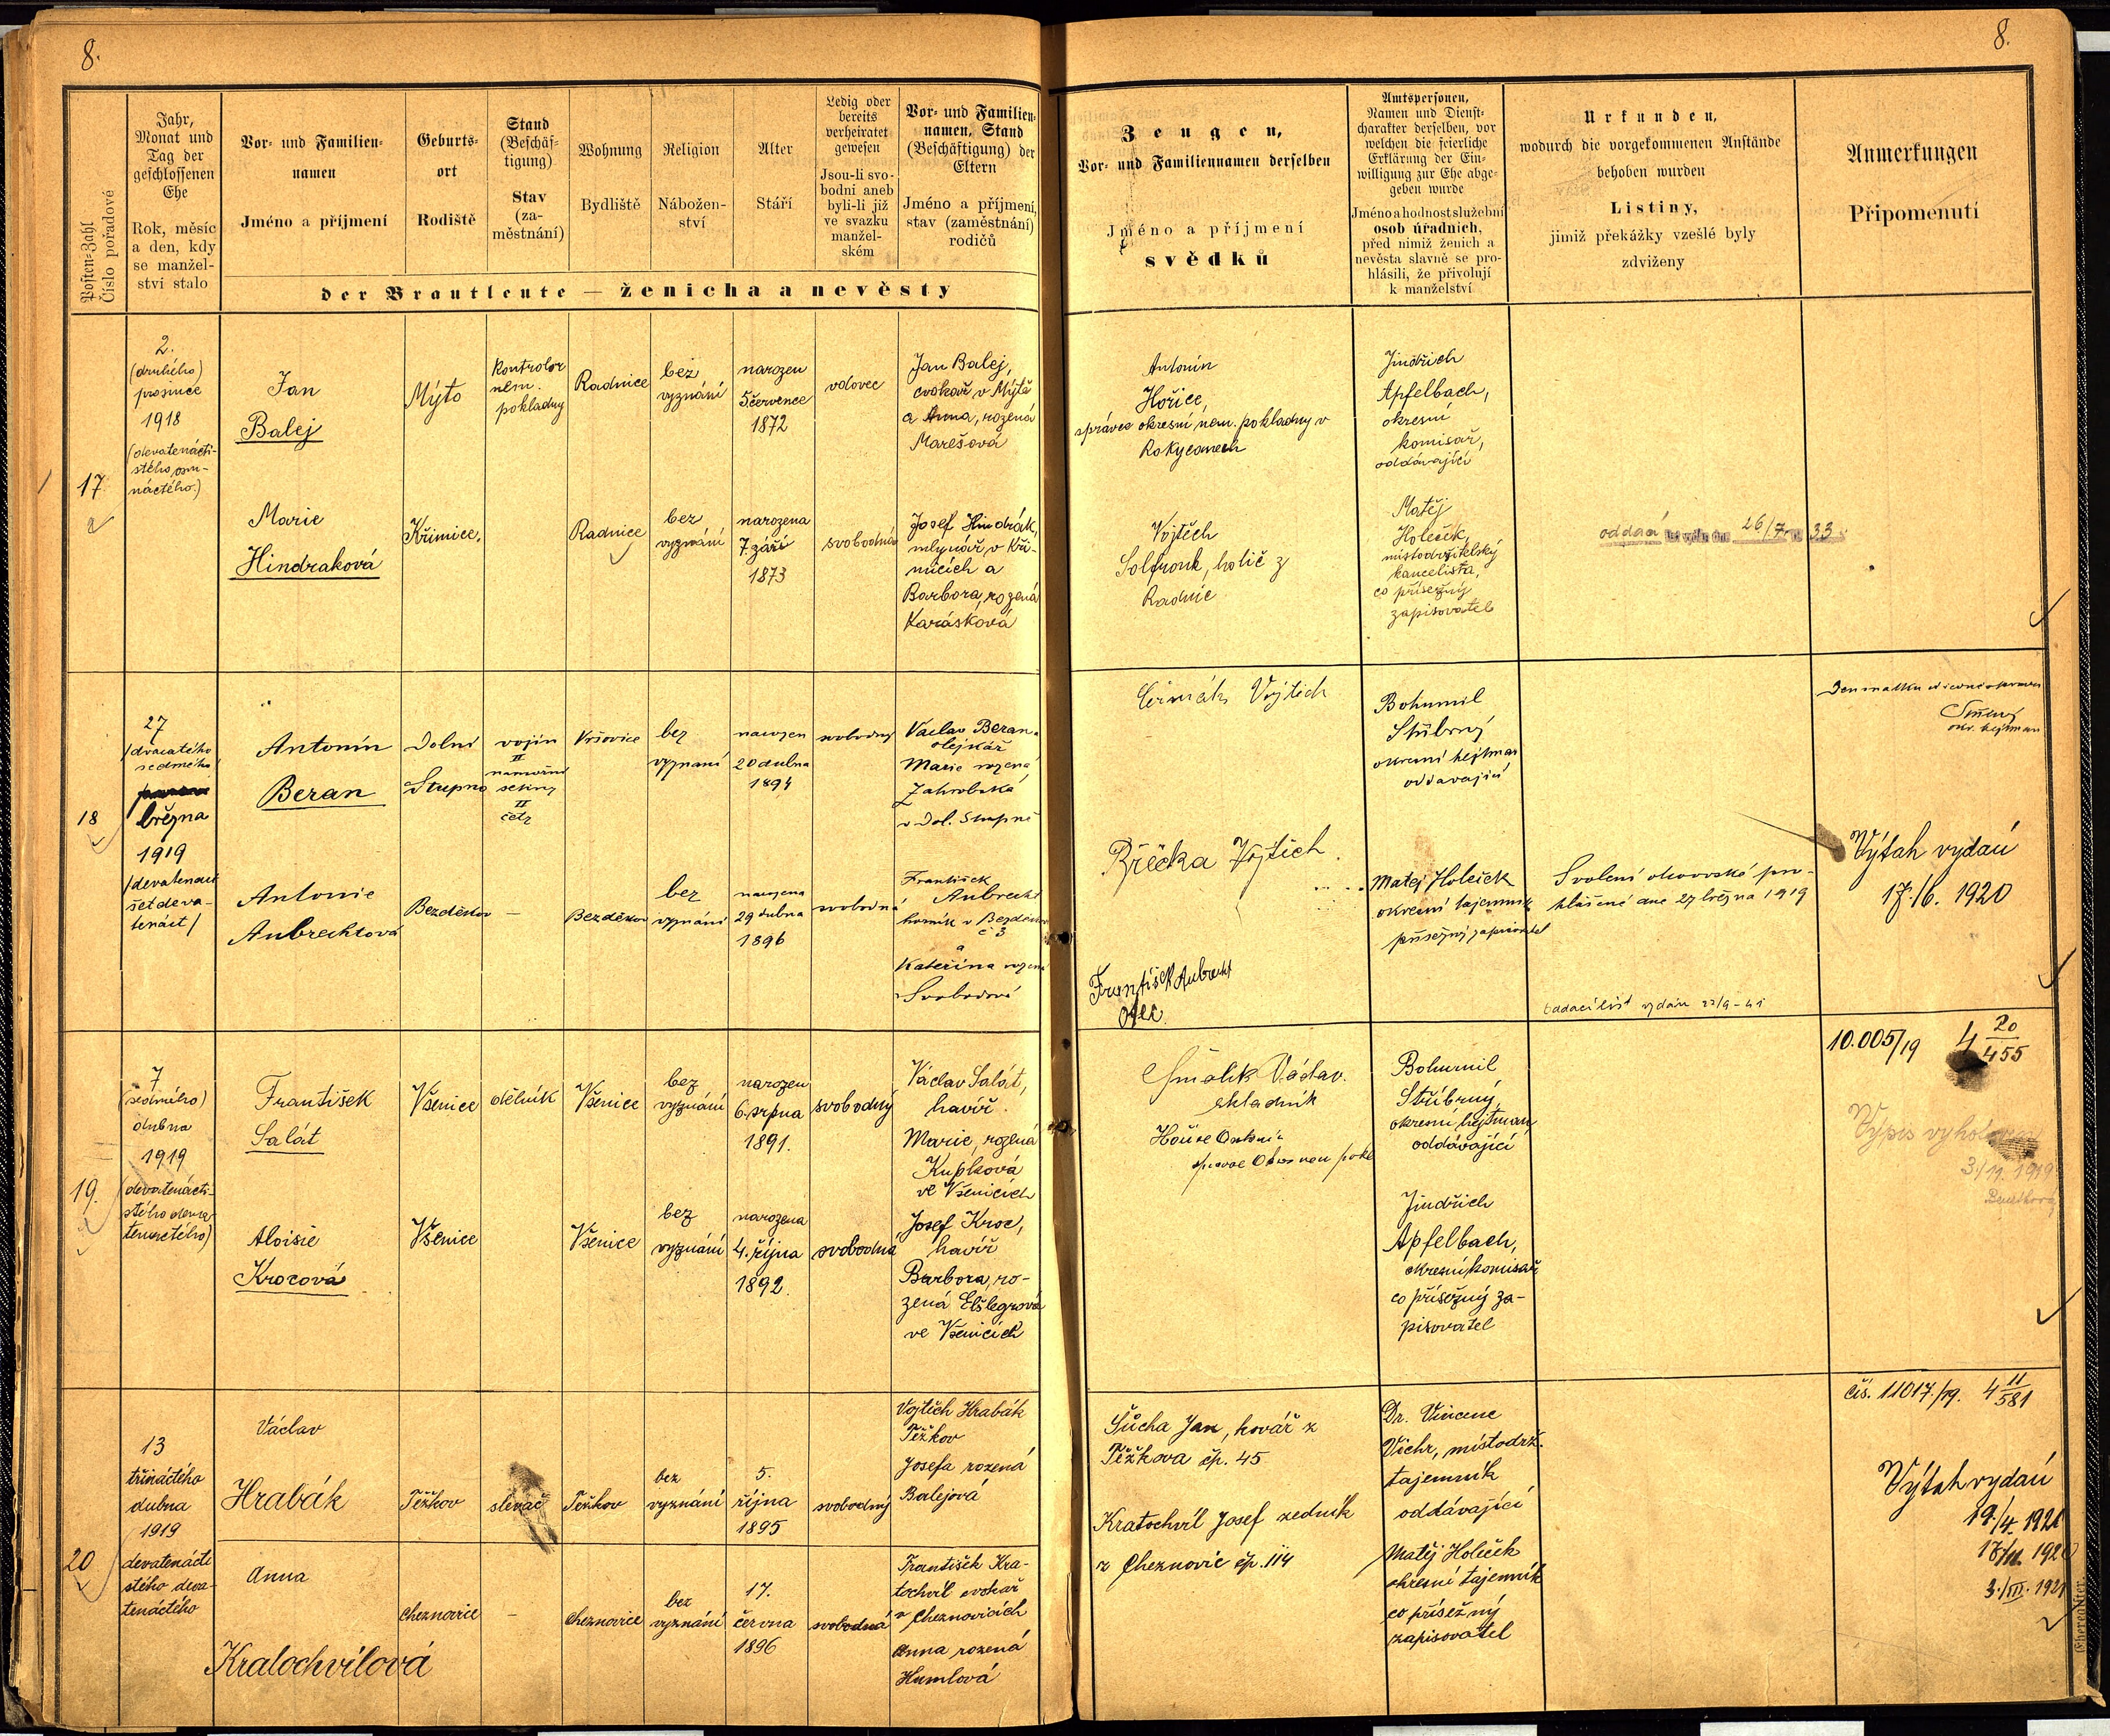 8.
8.
Posten-Zahl
Číslo pořadové
Jahr,
Monat und
Tag der
geschlossenen
Ehe
Rok, měsíc
a den, kdy
se manžel-
ství stalo
Vor- und Familien-
namen
Jméno a příjmení
Geburts-
ort
Rodiště
Stand
(Beschäf-
tigung)
Stav
(za-
městnání)
Wohnung
Bydliště
Religion
Nábožen-
ství
Alter
Stáří
Ledig oder
bereits
verheiratet
gewesen
Jsou-li svo-
bodni aneb
byli-li již
ve svazku
manžel-
ském
Vor- und Familien-
namen, Stand
(Beschäftigung) der
Eltern
Jméno a příjmení,
stav (zaměstnání)
rodičů
der Brautleute — ženicha a nevěsty
Zeugen,
Vor- und Familiennamen derselben
Jméno a příjmení
svědků
Amtspersonen,
Namen und Dienst-
charakter derselben, vor
welchen die feierliche
Erklärung der Ein-
willigung zur Ehe abge-
geben wurde
Jméno a hodnost služební
osob úředních,
před nimiž ženich a
nevěsta slavně se pro-
hlásili, že přivolují
k manželství
Urkunden,
wodurch die vorgekommenen Anstände
behoben wurden
Listiny,
jimiž překážky vzešlé byly
zdviženy
Anmerkungen
Připomenutí
17.
2.
(druhého)
prosince
1918
(devatenácti-
stého osm-
náctého.)
Jan
Balej
Mýto
kontrolor
nem.
pokladny
Radnice
bez
vyznání
narozen
5 července
1872
vdovec
Jan Balej,
cvokař v Mýtě
a Anna, rozená
Marešová
Marie
Hindraková
Křimice,
Radnice
bez
vyznání
narozena
7. září
1873
svobodná
Josef Hindrák,
mlynář v Kři-
micích a
Barbora, rozená
Karásková
Antonín
Hořice,
správce okresní nem. pokladny v
Rokycanech
Vojtěch
holič z
Radnic
Jindřich
Apfelbach,
okresní
komisař,
oddávající
Matěj
Holeček,
místodržitelský
kancelista,
co přísežný
zapisovatel
26/7 33
18
27
/dvacátého
sedmého
března
1919
/devatenáct
set deva-
tenáct/
Antonín
Beran
Dolní
Stupno
vojín
II
námořní
II
čety
Vršovice
bez
vyznání
narozen
20 dubna
1894
svobodný
Václav Beran
olejkář
Marie rozená
Zahrobská
v Dol. Stupně
Antonie
Aubrechtová
Bezděkov
—
Bezděkov
bez
vyznání
narozena
29 dubna
1896
svobodná
František
Aubrecht
horník v Bezděkově
č 3
a
Kateřina rozená
Svobodová
Čermák Vojtěch
Řžička Vojtěch.
František Aubrecht
otec.
Bohumil
Stříbrný
okresní hejtman
oddávající
Matěj Holeček
okresní tajemník
přísežný zapisovatel
Svolení otcovské pro-
hlášené dne 27 března 1919
Oddací list vydán 22/9-41
okr. hejtman
Výtah vydán
17./6. 1920
19.
7
(sedmého)
dubna
1919
(devatenácti-
stého deva-
tenáctého)
František
Salát
Všenice
dělník
Všenice
bez
vyznání
narozen
6. srpna
1891.
svobodný
Václav Salát,
havíř.
Marie, rozená
Kupková
ve Všenicích
Aloisie
Krocová
Všenice
Všenice
bez
vyznání
narozena
4. října
1892.
svobodná
Josef Kroc,
havíř
Barbora, ro-
zená Elšlegrová
ve Všenicích
Šmolík Václav.
skladník
Hořice Antonín
Bohumil
Stříbrný,
okresní hejtman,
oddávající
Jindřich
Apfelbach,
okresní komisař
co přísežný za-
pisovatel
10.005/19 4 20/455
Výpis vyhotoven
3./11. 1919
20
13
třináctého
dubna
1919
devatenácti
stého deva-
tenáctého
Václav
Hrabák
Těžkov
slevač
Těžkov
bez
vyznání
5.
října
1895
svobodný
Vojtěch Hrabák
Těžkov
Josefa rozená
Balejová
Anna
Kratochvílová
Cheznovice
—
Cheznovice
bez
vyznání
17.
června
1896
svobodná
František Kra-
tochvíl cvokař
v Cheznovicích
Anna rozená
Humlová
Šůcha Jan, kovář z
Těžkova čp. 45
Kratochvíl Josef zedník
z Cheznovic čp. 114
Dr. Vincenc
Vichr, místodrž.
tajemník
oddávající
Matěj Holeček
okresní tajemník
co přísežný
zapisovatel
čís. 11017./19. 4 11/581
Výtah vydán
19./4. 1920
17/11. 1920
3./III. 1921
Eheregister.